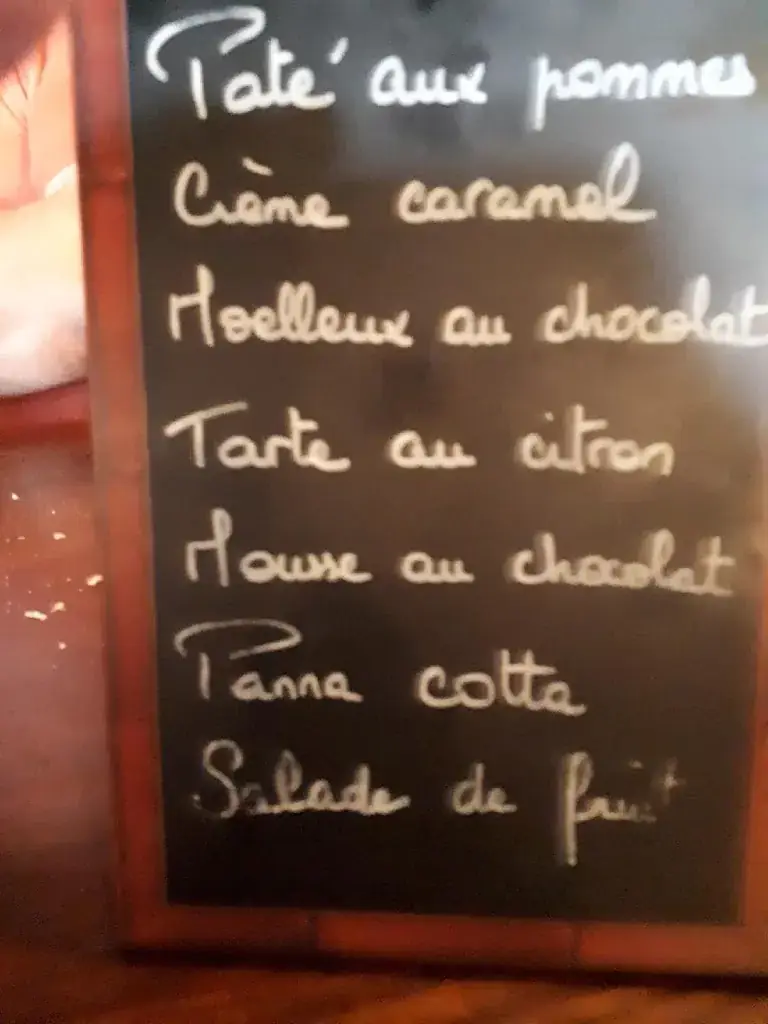 Paté aux pommes
Crème caramel
Moelleux au chocolat
Tarte au citron
Mousse au chocolat
Panna cotta
Salade de fruit